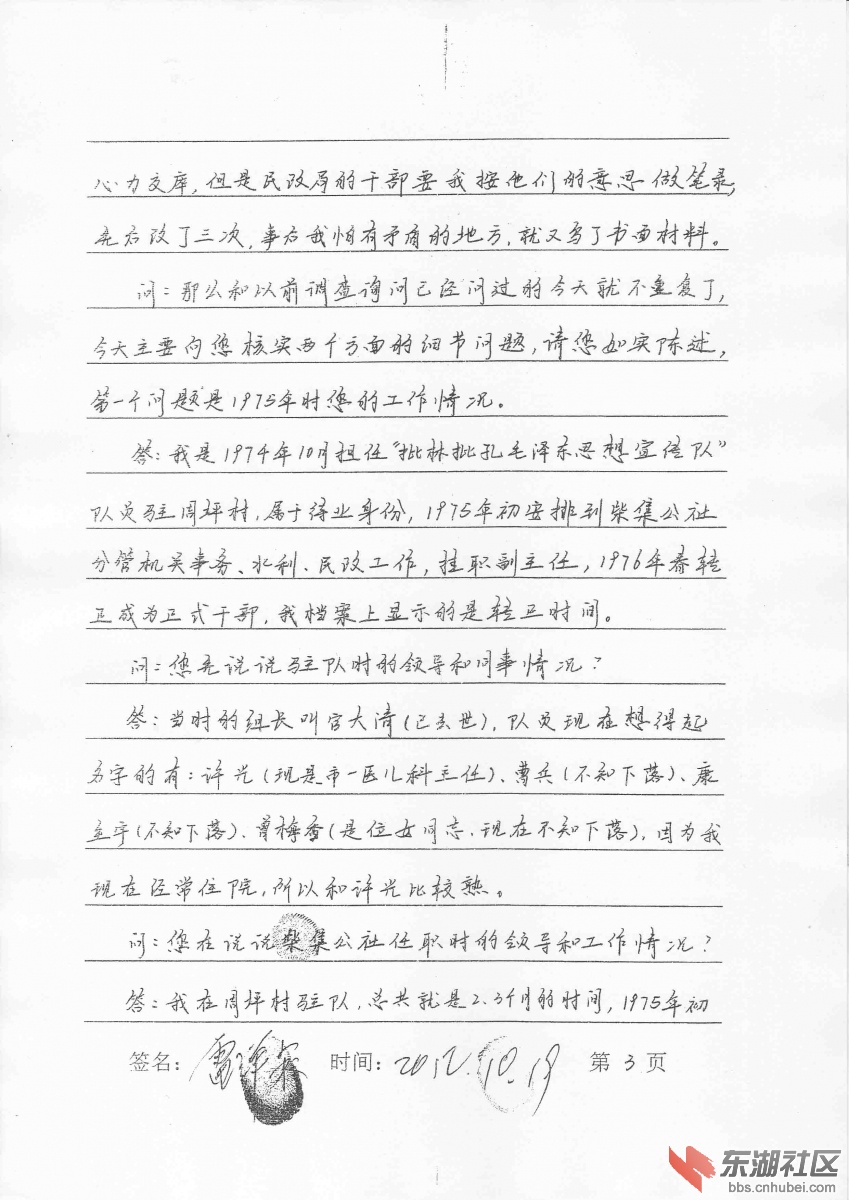 心力交瘁，但是民政局的干部要我按他们的意思做笔录，
先后改了三次，事后我怕有矛盾的地方，就又写了书面材料。
问：那么和以前调查询问已经问过的今天就不重复了，
今天主要向您核实两个方面的细节问题，请您如实陈述，
第一个问题是1975年时您的工作情况。
答：我是1974年10月担任“批林批孔毛泽东思想宣传队”
队员驻周坪村，属于待业身份，1975年初安排到柴集公社
分管机关事务、水利、民政工作，挂职副主任，1976年春转
正成为正式干部，我档案上显示的是转正时间。
问：您先说说驻队时的领导和同事情况？
答：当时的组长叫官大清（已去世），队员现在想得起
名字的有：许兴（现是市一医儿科主任）、曹兵（不知下落）、康
立平（不知下落）、曾梅香（是位女同志，现在不知下落），因为我
现在经常住院，所以和许兴比较熟。
问：您在说说柴集公社任职时的领导和工作情况？
答：我在周坪村驻队，总共就是2.3个月的时间，1975年初
签名： 时间：2012.10.19 第3页
东湖社区
bbs.cnhubei.com